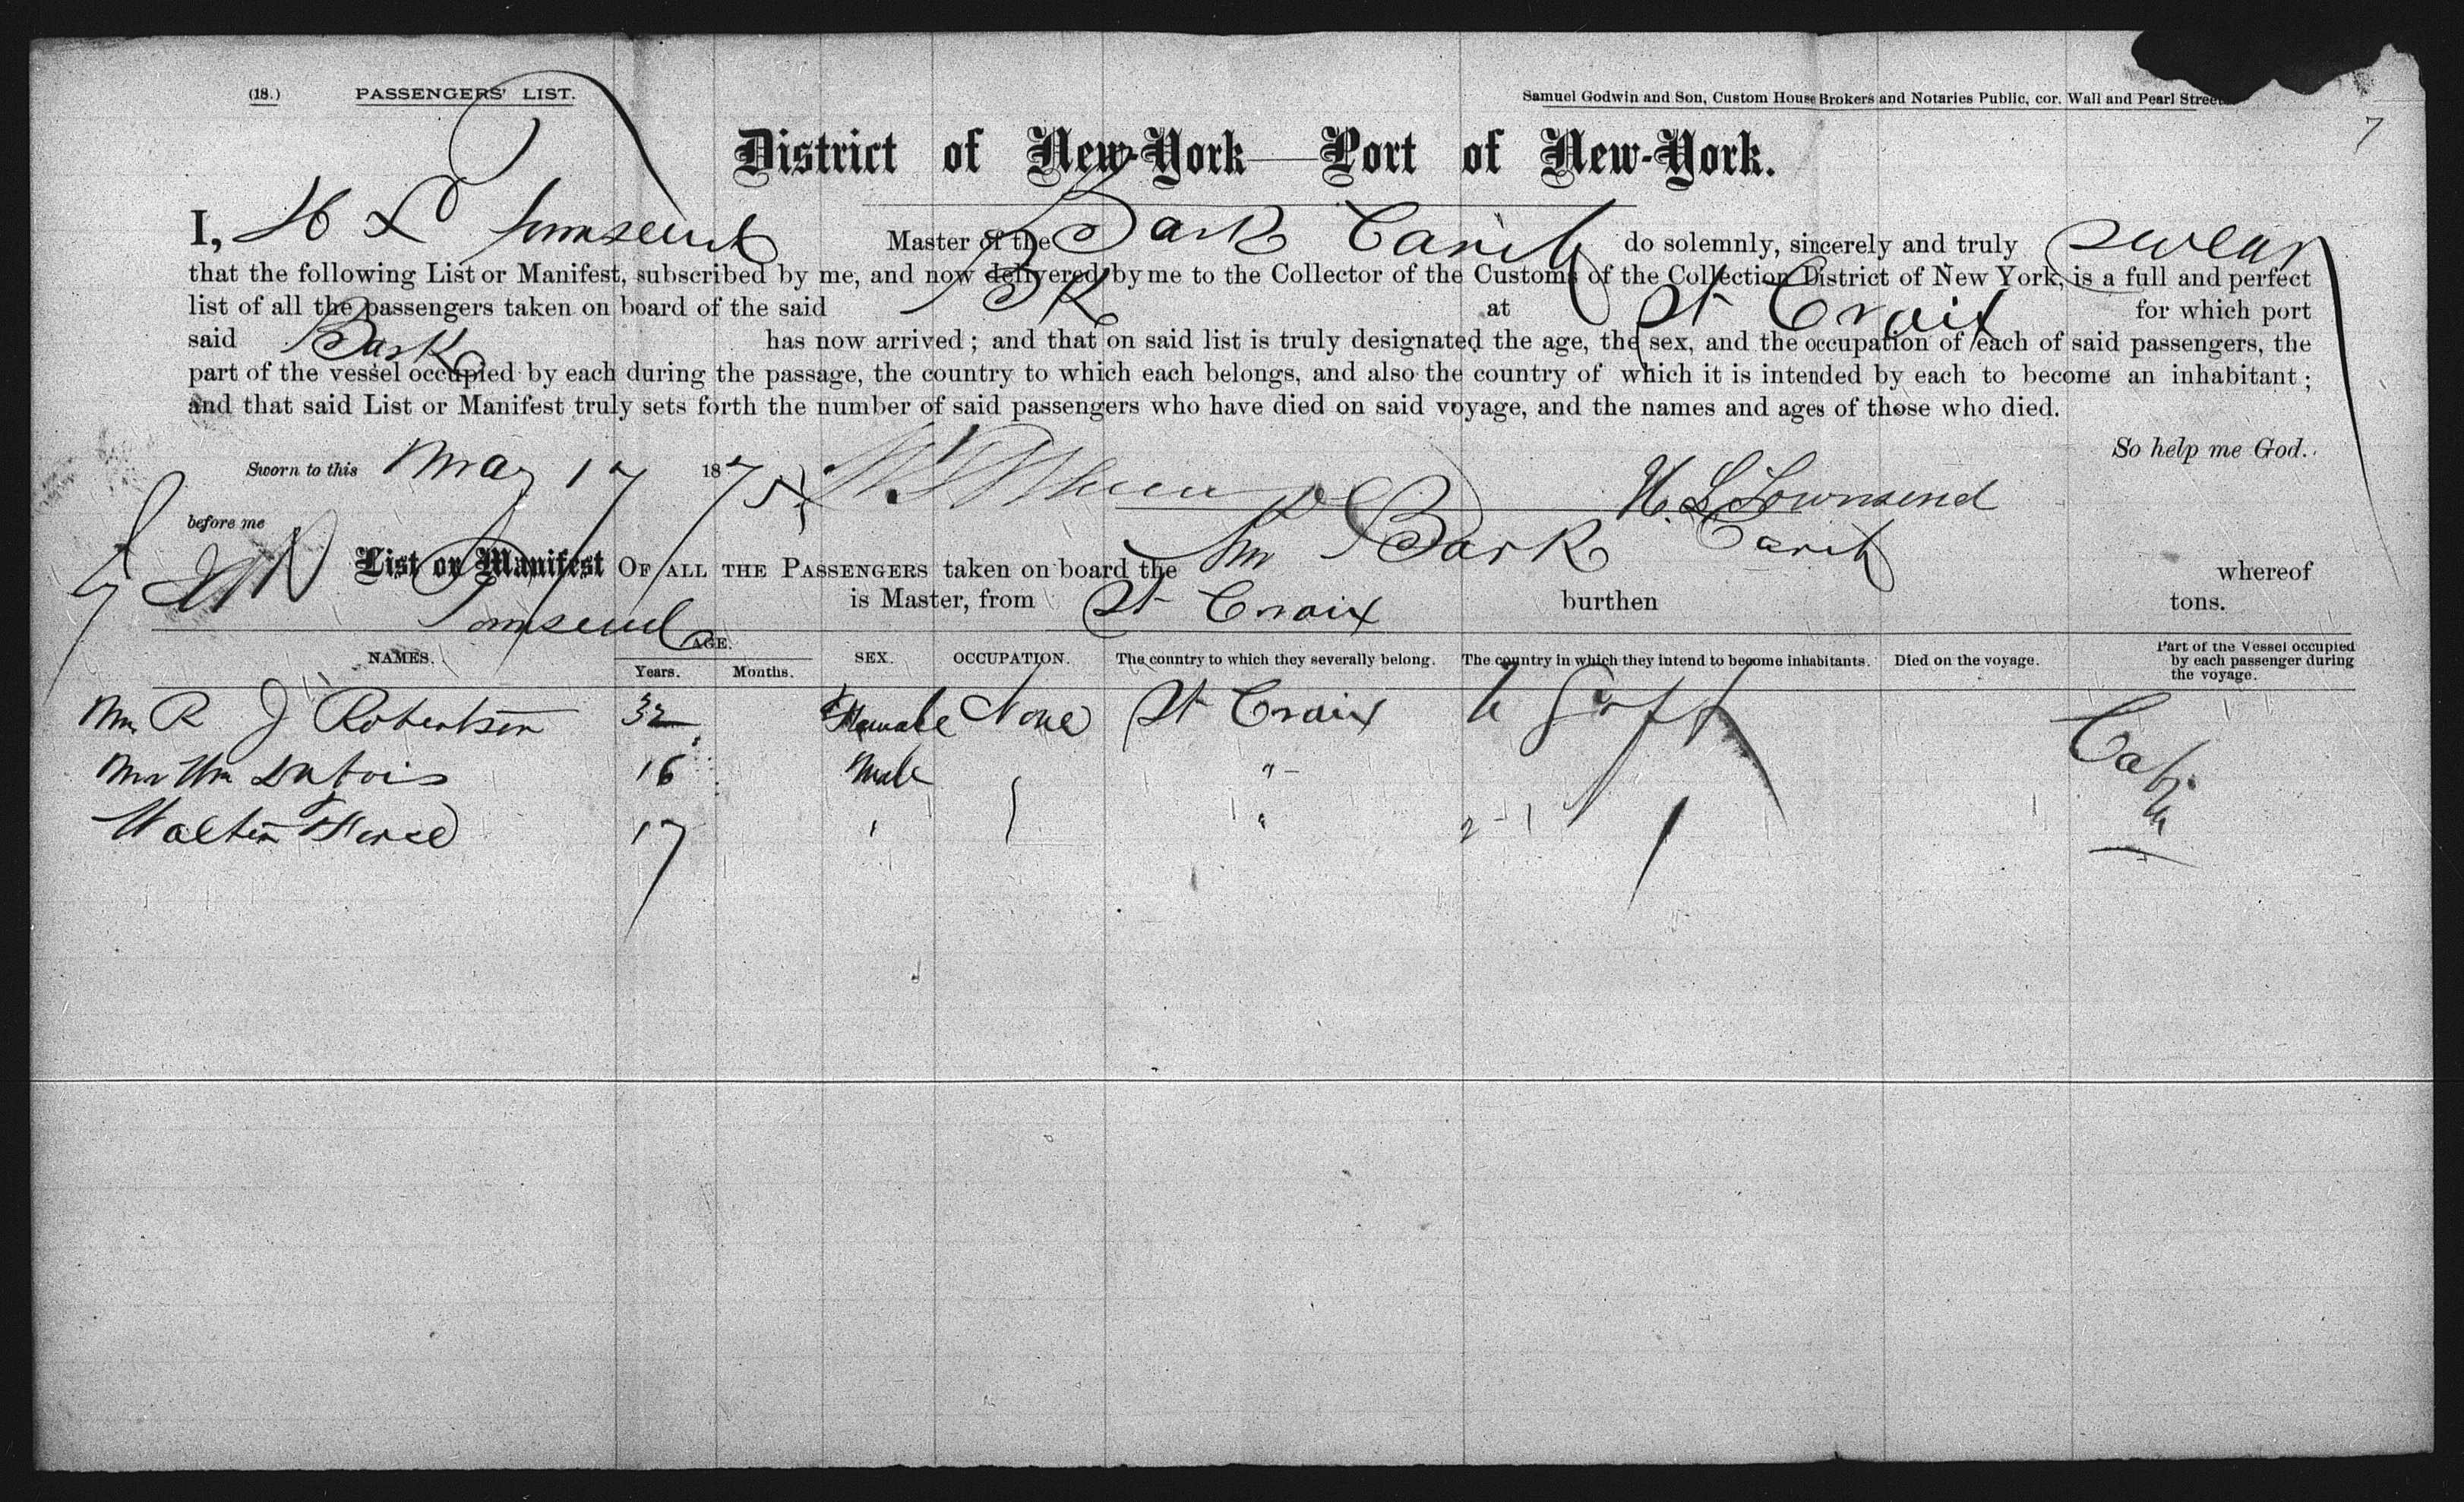 (18.) PASSENGERS' LIST. Samuel Godwin and Son, Custom House Brokers and Notaries Public, cor. Wall and Pearl Streets
7
District of New-York—Port of New-York.
I, H L Townsend Master of the Bark Carib do solemnly, sincerely and truly swear
that the following List or Manifest, subscribed by me, and now delivered by me to the Collector of the Customs of the Collection District of New York, is a full and perfect
list of all the passengers taken on board of the said BK at St Croix for which port
said Bark has now arrived; and that on said list is truly designated the age, the sex, and the occupation of each of said passengers, the
part of the vessel occupied by each during the passage, the country to which each belongs, and also the country of which it is intended by each to become an inhabitant;
and that said List or Manifest truly sets forth the number of said passengers who have died on said voyage, and the names and ages of those who died.
So help me God.
Sworn to this May 17 1875
H. L Townsend
before me
List or Manifest OF ALL THE PASSENGERS taken on board the Bark Carib whereof
Townsend is Master, from St Croix burthen tons.
NAMES. AGE. Years. Months. SEX. OCCUPATION. The country to which they severally belong. The country in which they intend to become inhabitants. Died on the voyage. Part of the Vessel occupied by each passenger during the voyage.
R J Robertson 32 Female None St Croix
Wm Dubois 16 Male "
Walter 17 " "